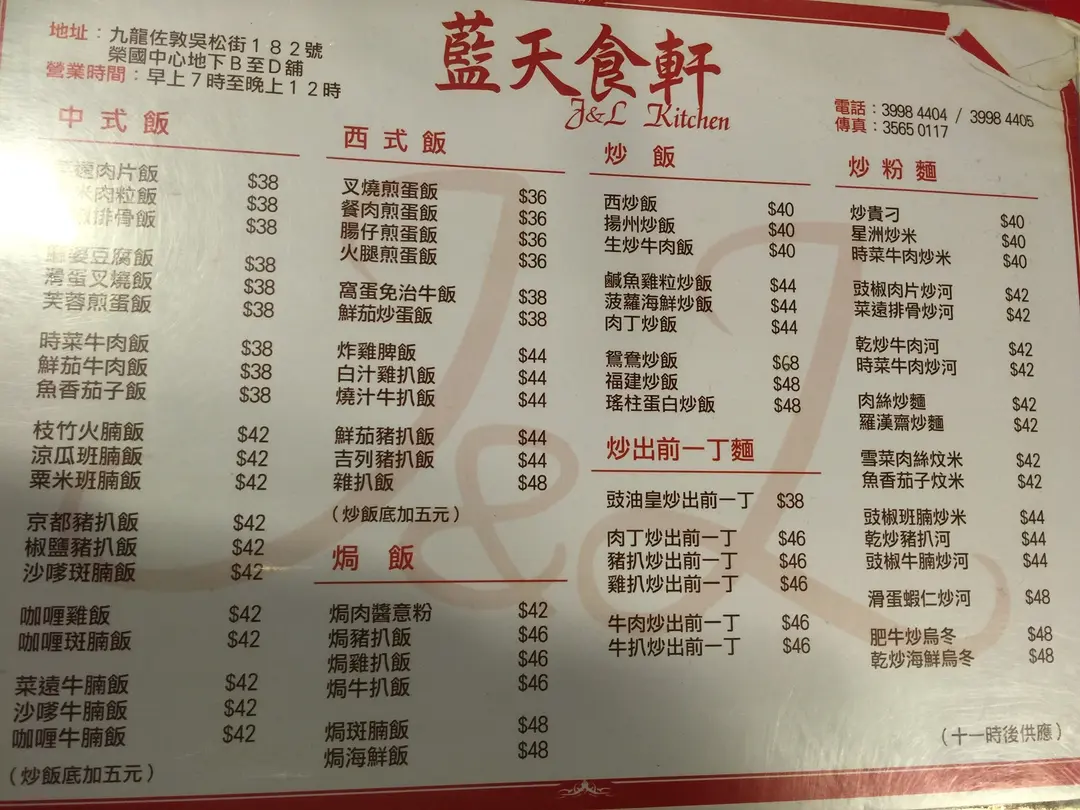 地址：九龍佐敦吳松街１８２號
榮國中心地下Ｂ至Ｄ舖
營業時間：早上７時至晚上１２時
藍天食軒
J&L Kitchen
電話：3998 4404 / 3998 4405
傳真：3565 0117
中式飯
遠肉片飯 $38
米肉粒飯 $38
排骨飯 $38
麻婆豆腐飯 $38
滑蛋叉燒飯 $38
芙蓉煎蛋飯 $38
時菜牛肉飯 $38
鮮茄牛肉飯 $38
魚香茄子飯 $38
枝竹火腩飯 $42
涼瓜班腩飯 $42
粟米班腩飯 $42
京都豬扒飯 $42
椒鹽豬扒飯 $42
沙嗲斑腩飯 $42
咖喱雞飯 $42
咖喱斑腩飯 $42
菜遠牛腩飯 $42
沙嗲牛腩飯 $42
咖喱牛腩飯 $42
（炒飯底加五元）
西式飯
叉燒煎蛋飯 $36
餐肉煎蛋飯 $36
腸仔煎蛋飯 $36
火腿煎蛋飯 $36
窩蛋免治牛飯 $38
鮮茄炒蛋飯 $38
炸雞脾飯 $44
白汁雞扒飯 $44
燒汁牛扒飯 $44
鮮茄豬扒飯 $44
吉列豬扒飯 $44
雜扒飯 $48
（炒飯底加五元）
焗飯
焗肉醬意粉 $42
焗豬扒飯 $46
焗雞扒飯 $46
焗牛扒飯 $46
焗斑腩飯 $48
焗海鮮飯 $48
炒飯
西炒飯 $40
揚州炒飯 $40
生炒牛肉飯 $40
鹹魚雞粒炒飯 $44
菠蘿海鮮炒飯 $44
肉丁炒飯 $44
鴛鴦炒飯 $68
福建炒飯 $48
瑤柱蛋白炒飯 $48
炒出前一丁麵
豉油皇炒出前一丁 $38
肉丁炒出前一丁 $46
豬扒炒出前一丁 $46
雞扒炒出前一丁 $46
牛肉炒出前一丁 $46
牛扒炒出前一丁 $46
炒粉麵
炒貴刁 $40
星洲炒米 $40
時菜牛肉炒米 $40
豉椒肉片炒河 $42
菜遠排骨炒河 $42
乾炒牛肉河 $42
時菜牛肉炒河 $42
肉絲炒麵 $42
羅漢齋炒麵 $42
雪菜肉絲炆米 $42
魚香茄子炆米 $42
豉椒班腩炒米 $44
乾炒豬扒河 $44
豉椒牛腩炒河 $44
滑蛋蝦仁炒河 $48
肥牛炒烏冬 $48
乾炒海鮮烏冬 $48
（十一時後供應）